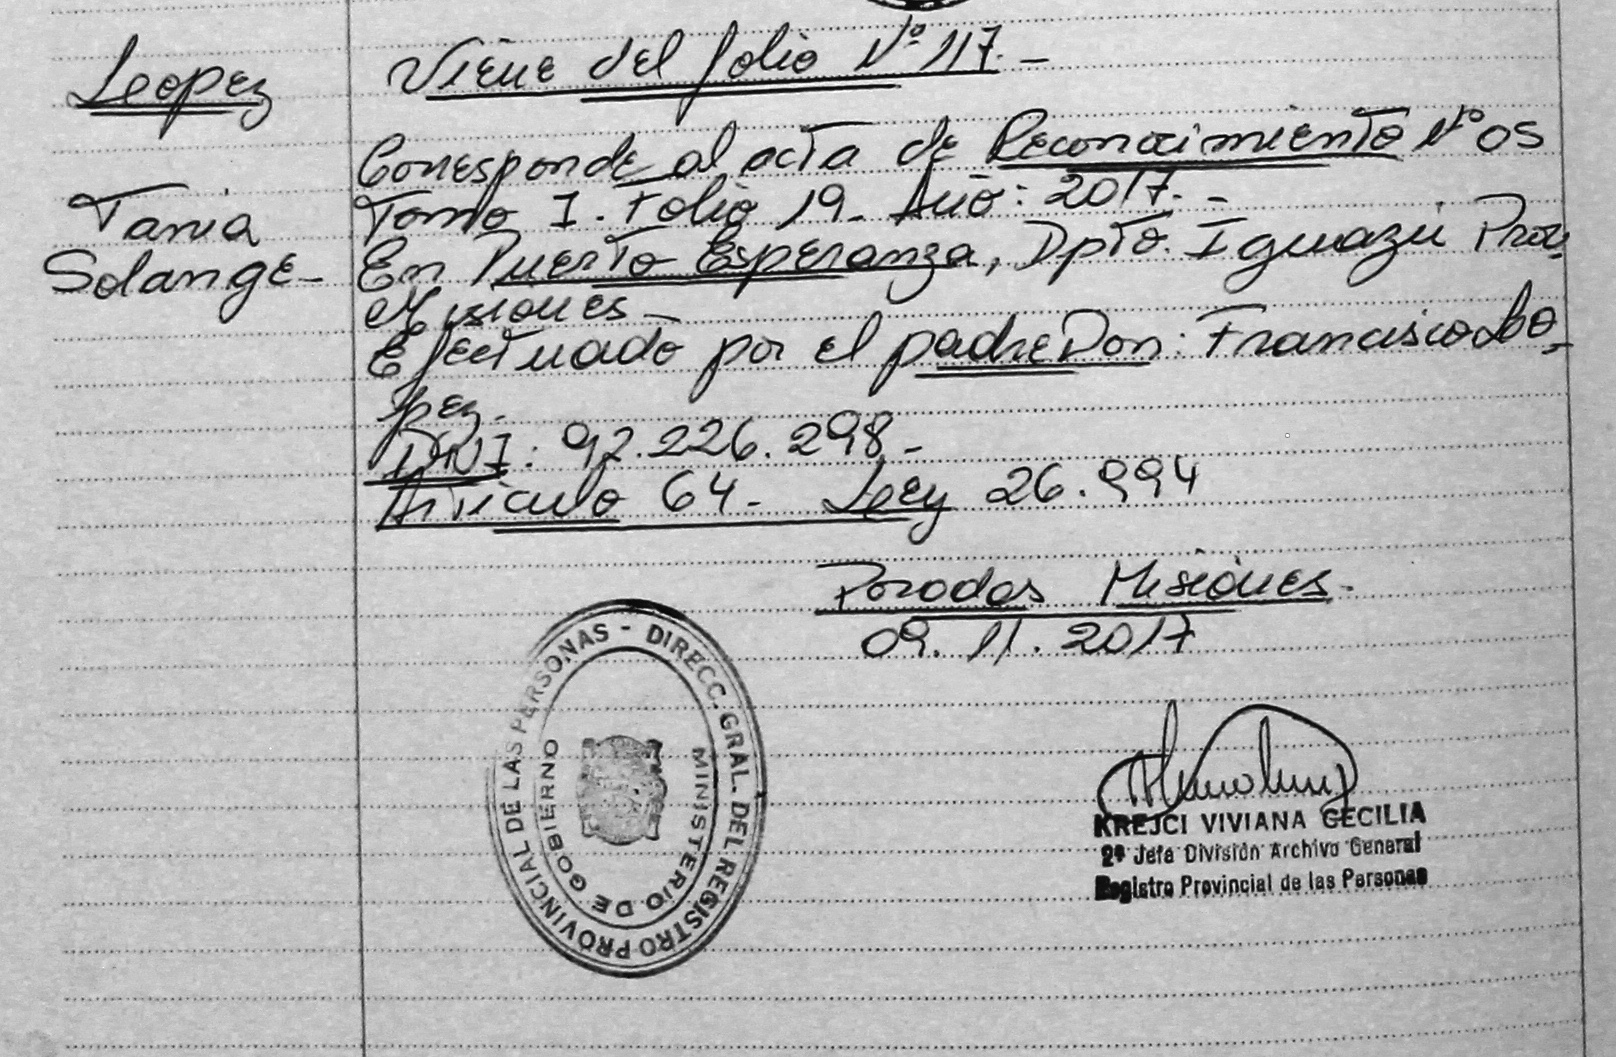 Leopez
Viene del folio Nº 117.-
Corresponde al acta de Reconocimiento Nº 05
Tania
Tomo I. Folio 19- Año: 2017.-
Solange-
En Puerto Esperanza, Dpto. Iguazú Prov,
Misiones-
Efectuado por el padre Don: Francisco Lo-
pez.
DNI: 92.226.298-
Artículo 64- Ley 26.994
Posadas Misiones-
09.11.2017
DIRECC. GRAL. DEL REGISTRO PROVINCIAL DE LAS PERSONAS -
MINISTERIO DE GOBIERNO
KREJCI VIVIANA CECILIA
2º Jefa División Archivo General
Registro Provincial de las Personas